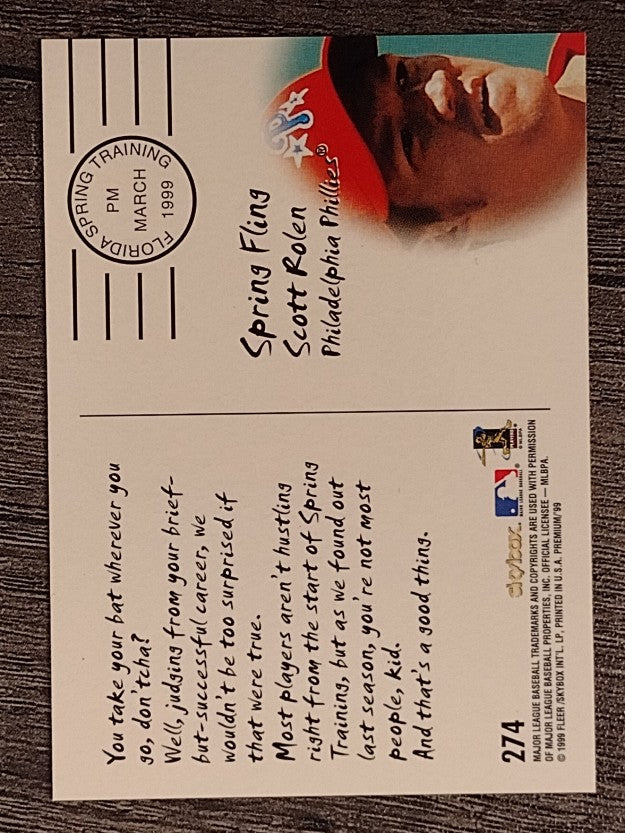 You take your bat wherever you
go, don'tcha?
Well, judging from your brief-
but-successful career, we
wouldn't be too surprised if
that were true.
Most players aren't hustling
right from the start of Spring
Training, but as we found out
last season, you're not most
people, kid.
And that's a good thing.
FLORIDA SPRING TRAINING
PM
MARCH
1999
Spring Fling
Scott Rolen
Philadelphia Phillies®
P
274
skybox
MAJOR LEAGUE BASEBALL TRADEMARKS AND COPYRIGHTS ARE USED WITH PERMISSION
OF MAJOR LEAGUE BASEBALL PROPERTIES, INC. OFFICIAL LICENSEE — MLBPA.
© 1999 FLEER /SKYBOX INT'L. LP, PRINTED IN U.S.A. PREMIUM/'99